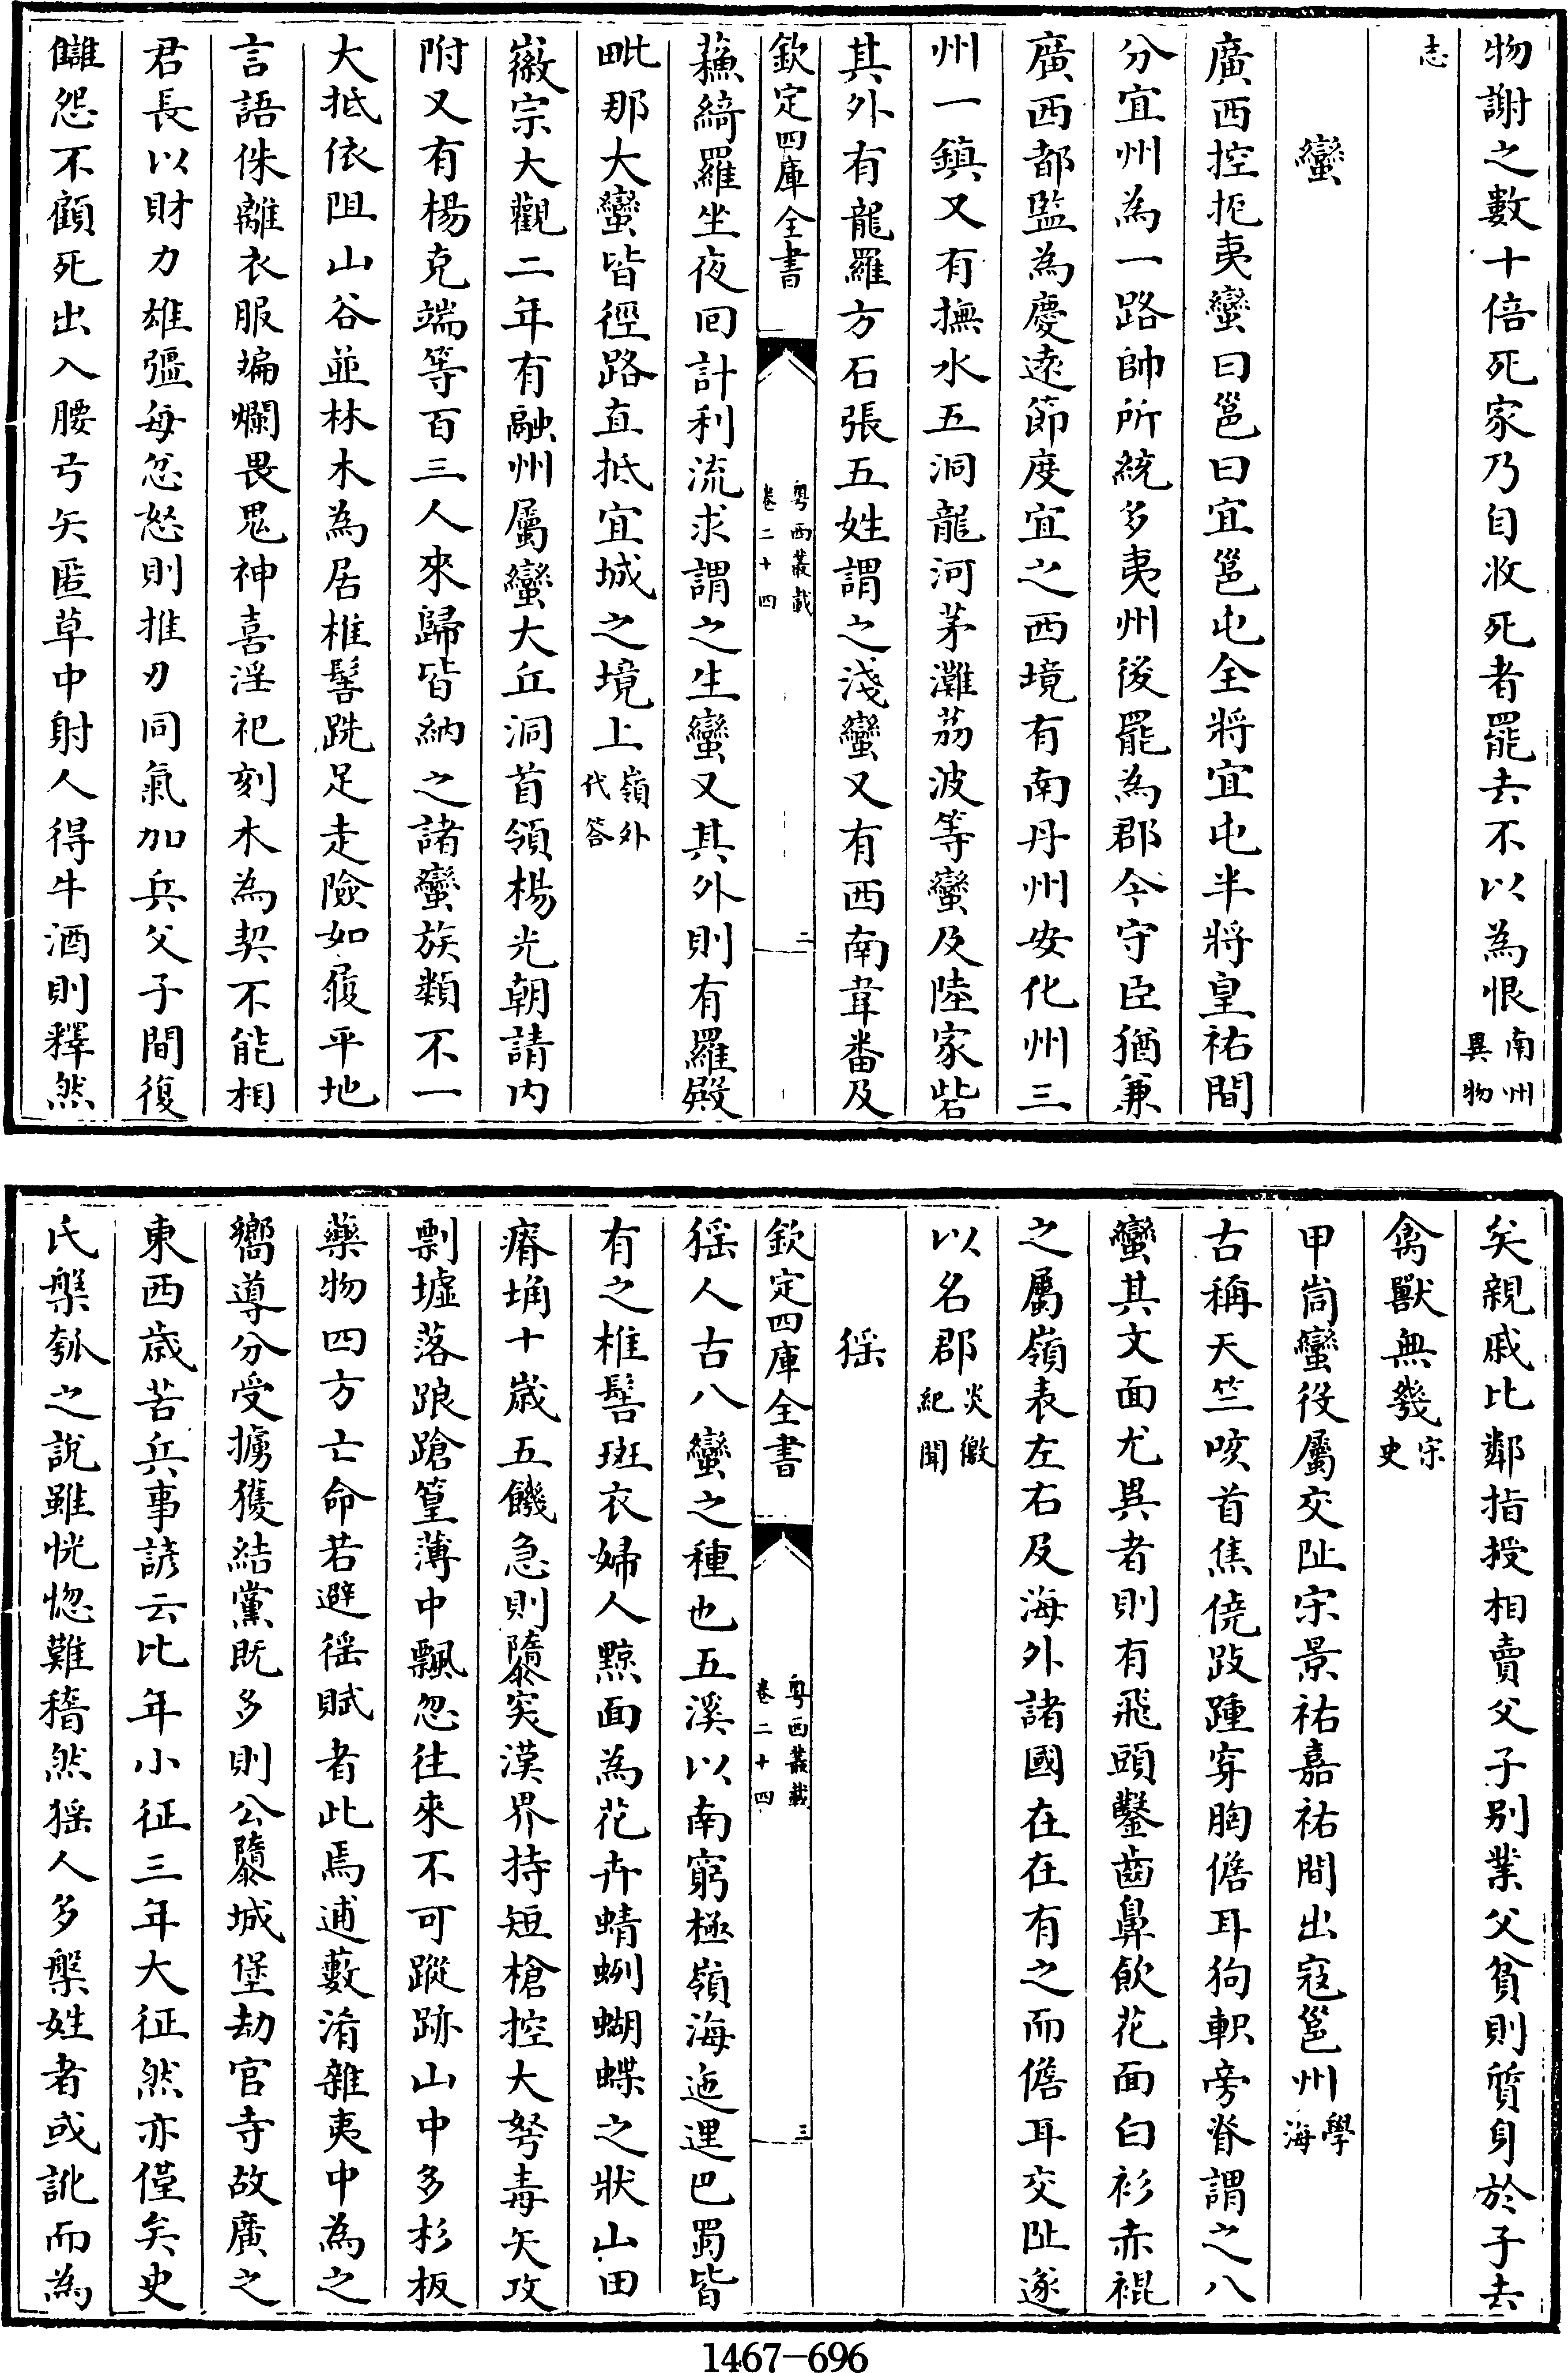 物謝之數十倍死家乃自收死者罷去不以為恨南州異物
志
蠻
廣西控扼夷蠻曰邕曰宜邕屯全將宜屯半將皇祐間
分宜州為一路帥所統多夷州後罷為郡今守臣猶兼
廣西都監為慶逺節度宜之西境有南丹州安化州三
州一鎮又有撫水五洞龍河茅灘荔波等蠻及陸家砦
其外有龍羅方石張五姓謂之淺蠻又有西南韋番及
欽定四庫全書
粵西叢載
卷二十四
二
蘓綺羅坐夜囘計利流求謂之生蠻又其外則有羅殿
毗那大蠻皆徑路直抵宜城之境上嶺外代答
徽宗大觀二年有融州屬蠻大丘洞首領楊光朝請内
附又有楊克端等百三人來歸皆納之諸蠻族類不一
大抵依阻山谷並林木為居椎髻跣足走險如履平地
言語侏離衣服斒斕畏鬼神喜淫祀刻木為契不能相
君長以財力雄彊每忿怒則推刃同氣加兵父子間復
讎怨不顧死出入腰弓矢匿草中射人得牛酒則釋然
矣親戚比鄰指授相賣父子别業父貧則質身於子去
禽獸無幾宋史
甲峝蠻役屬交阯宋景祐嘉祐間出冦邕州學海
古稱天竺咳首焦僥跂踵穿胸儋耳狗軹旁脊謂之八
蠻其文面尤異者則有飛頭鑿齒鼻飲花面白衫赤裩
之屬嶺表左右及海外諸國在在有之而儋耳交阯遂
以名郡炎徼紀聞
猺
欽定四庫全書
粵西叢載
卷二十四
三
猺人古八蠻之種也五溪以南窮極嶺海迤逦巴蜀皆
有之椎髻斑衣婦人黥面為花卉蜻蛚蝴蝶之狀山田
瘠埆十歲五饑急則隳突漢界持短槍控大弩毒矢攻
剽墟落踉蹌篁薄中飄忽往來不可蹤跡山中多杉板
藥物四方亡命若避徭賦者此焉逋藪淆雜夷中為之
嚮導分受擄獲結黨既多則公隳城堡劫官寺故廣之
東西歲苦兵事諺云比年小征三年大征然亦僅矣史
氏槃瓠之說雖恍惚難稽然猺人多槃姓者或訛而為
1467-696